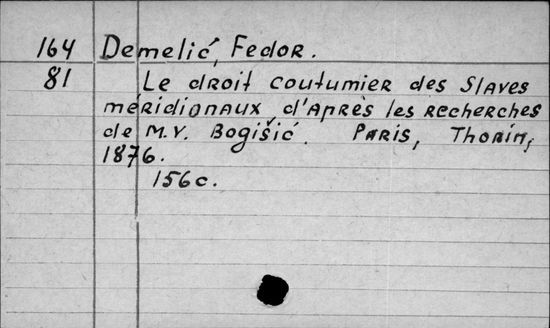 164 Demelić, Fedor.
81 Le droit coutumier des Slaves
méridionaux d'après les recherches
de M.V. Bogišić. Paris, Thorin,
1876.
156 c.